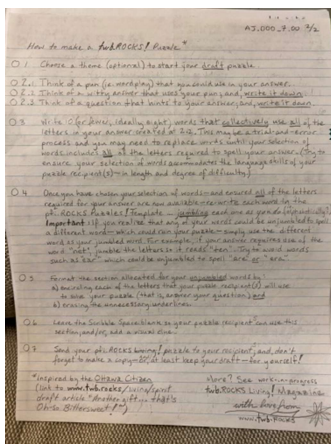 AJ.000_7.00 3/2
How to make a twb.ROCKS! Puzzle*
0 1. Choose a theme (optional) to start your draft puzzle.
0 2.1 Think of a pun (i.e. wordplay) that you could use in your answer.
0 2.2 Think of a witty answer that uses your pun, and, write it down.
0 2.3 Think of a question that hints to your answer, and, write it down.
0 3 Write (or fewer, ideally eight) words that collectively use all of the
letters in your answer created at 2.2. This may be a trial-and-error
process and you may need to replace words until your selection of
words includes all of the letters required to spell your answer. (Try to
ensure your selection of words accommodates the language skills of your
puzzle recipient(s) - in length and degree of difficulty.)
0 4 Once you have chosen your selection of words - and ensured all of the letters
required for your answer are now available - re-write each word in the
ROCKS Puzzles! Template - jumbling each one as you do
Important: if you realize that any of your words could be unjumbled to spell
a different word - which could ruin your puzzle - simply use the different
word as your jumbled word. For example, if your answer requires use of the
word "not", jumble the letters so it reads "ton". Try to avoid words
such as "ear" which could be unjumbled to spell "are" or "era".
0 5 Format the section allocated for your unjumbled words by:
a) encircling each of the letters that your puzzle recipient(s) will use
to solve your puzzle (that is, answer your question) and
b) erasing the unnecessary underlines.
0 6 Leave the Scribble Space blank so your puzzle recipient can use this
section, and/or, add a visual clue.
0 7 Send your ROCKS puzzle to your recipient, and, don't
forget to make a copy - or, at least keep your draft - for yourself!
*inspired by the Ottawa Citizen
(link to www.twb.rocks/
draft article "Another gift you that's
Oh-so Bittersweet!")
More? See work-in-progress
Living! Magazine
with love from
www.twb.rocks